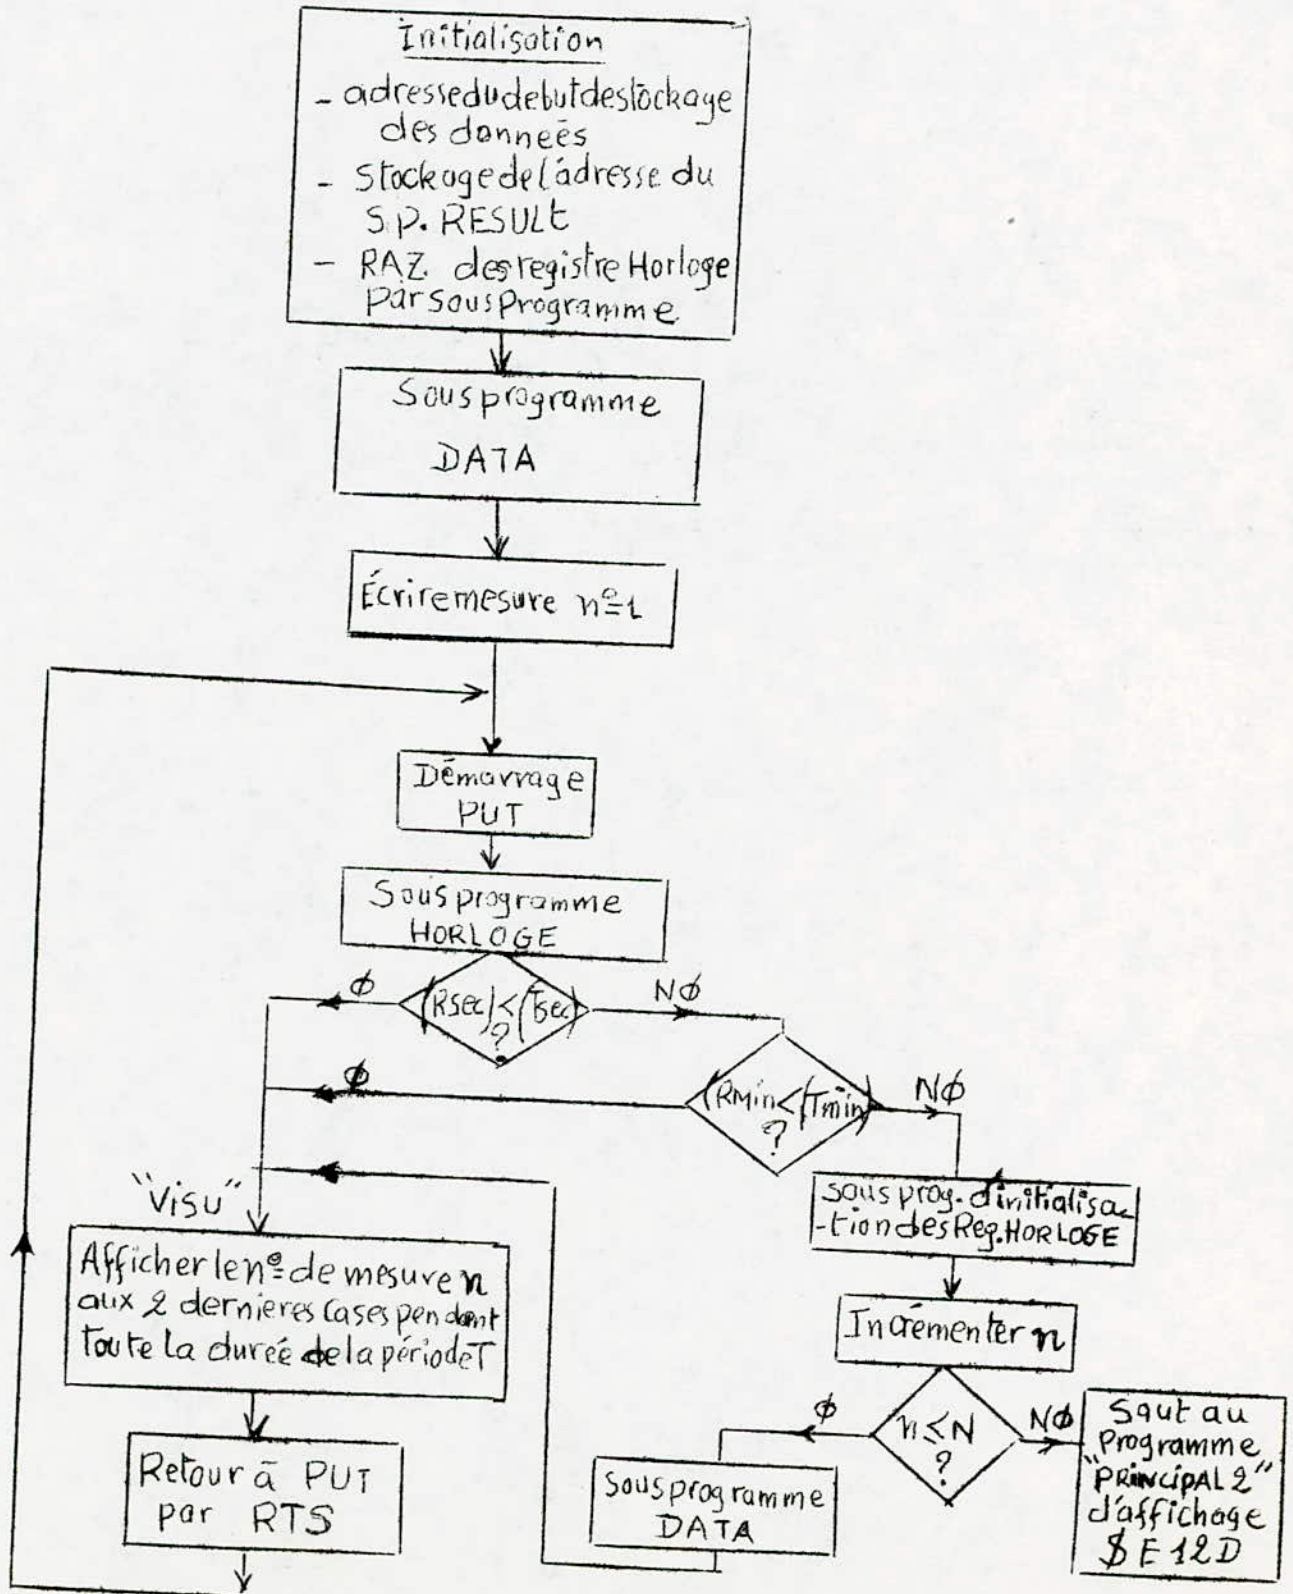 Initialisation
- adresse du debut de stockage
des données
- Stockage de l'adresse du
S.P. RESULt
- RAZ. des registre Horloge
par sous Programme
Sous programme
DATA
Écrire mesure n°=1
Démarrage
PUT
Sous programme
HORLOGE
Φ
(Rsec)<(Tsec)
?
NΦ
Φ
(RMin<(Tmin)
?
NΦ
"Visu"
sous prog. d'initialisa-
-tion des Reg. HORLOGE
Afficher le n° de mesure n
aux 2 dernieres cases pendant
toute la durée de la période T
Incrémenter n
Φ
n≤N
?
NΦ
Saut au
Programme
"PRINCIPAL 2"
d'affichage
$E12D
Retour à PUT
par RTS
Sous programme
DATA